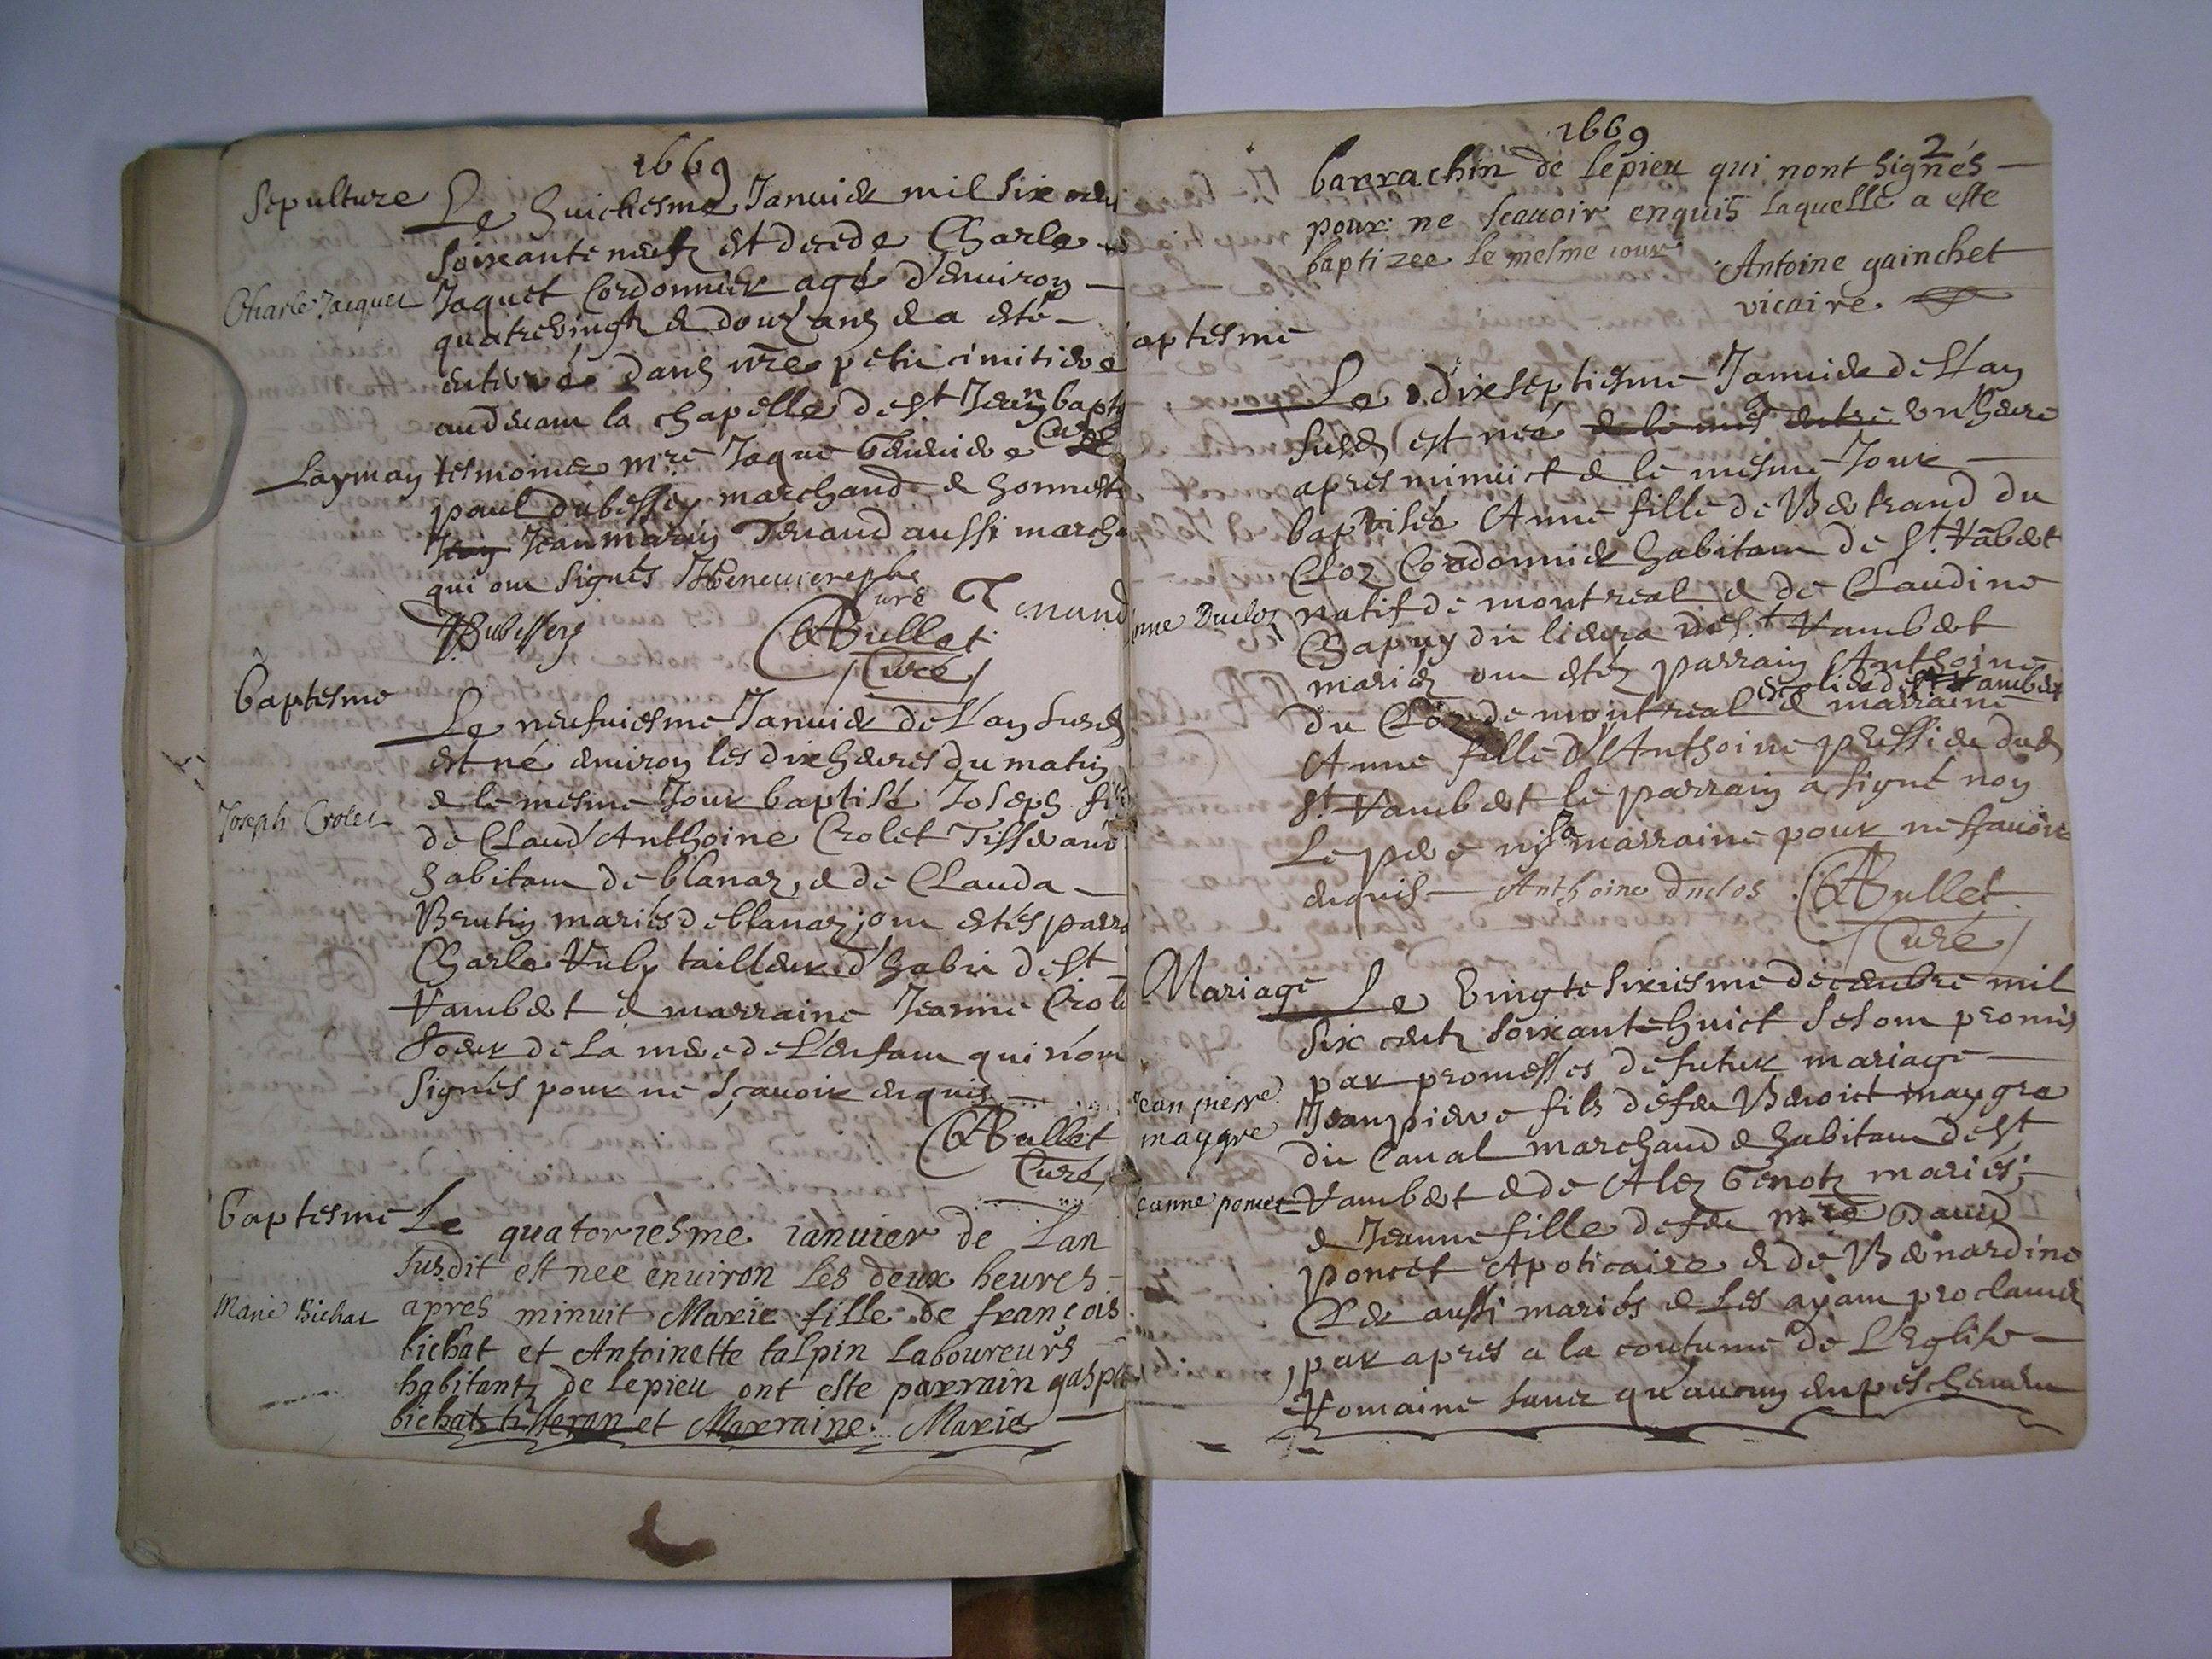 1669
Sepulture Le huictiesme Januier mil six cen
soixante neufz est decede Charle
Charle Jacquet Jaquet Cordonnier agé d'enuiron
quatrevingtz & douz ans & a esté
enterré dans nre petit cimitiere
audeuam la chapelle de St Jean bapt
Layman tesmoinez mre Jaque Curé de
paul dubessey marchand & honneste
Jean marin Tenand aussi marcha
qui ont signés
Dubessey CABullet Curé Tenand
Curé
baptesme
Le neufuiesme Januier de L'an susd
est né enuiron les dix heures du matin
& le mesme Jour baptisé Joseph fil
Joseph Crolet de Claud Anthoine Crolet Tisserand
habitam de blanaz, & de Clauda
Brutin mariés de blanaz; om estés parra
Charle Vuly tailleur d'habit de St
Vambert & marraine Jeanne Crole
soeur de La mere de L'enfam qui n'om
signés pour ne sçauoir enquis
CABullet
Curé
baptesme Le quatorziesme ianuier de Lan
susdit est nee enuiron les deux heures
Marie Bichat apres minuit Marie fille de françois
bichat et Antoinette talpin Laboureurs
habitantz de lepieu ont este parrain gaspa
bichat tisseran et Marraine Marie
1669
2
barrachin de lepieu qui nont signés
pour ne scauoir enquis laquelle a este
baptizee le mesme iour
Antoine gainchet
vicaire
aptesme
Le dixseptiesme Januier de L'an
susd est née un heure
apres minuict & le mesme Jour
baptisée Anne fille de Bertrand du
Cloz Cordonnier habitam de St. Vâbert
nne Ducloz natif de montreal & de Claudine
Chapuy du liera de St Vambert
mariez om estéz parrain Anthoine
escolier de St Vambert
du Cloz de montreal & marraine
Anne fille d'Anthoine pressieu dud
St. Vambert le parrain a signé non
Le pere ny la marraine pour ne sçauoir
enquis Anthoine duclos CABullet
Curé
Mariage Le vingtesixiesme decembre mil
six centz soixantehuict se som promis
par promesses de futur mariage
ean pierre Jeanpierre fils de feu Benoict maygre
maygre du Canal marchand & habitam de St
Vambert & de Alez Genotz mariés;
eanne poncet & Jeanne fille de feu mre Dauid
poncet Apoticaire & de Bernardine
Cler aussi mariés & Les ayam proclamé
par apres a la coutume de L'Eglise
Romaine sans qu'aucun empeschemem